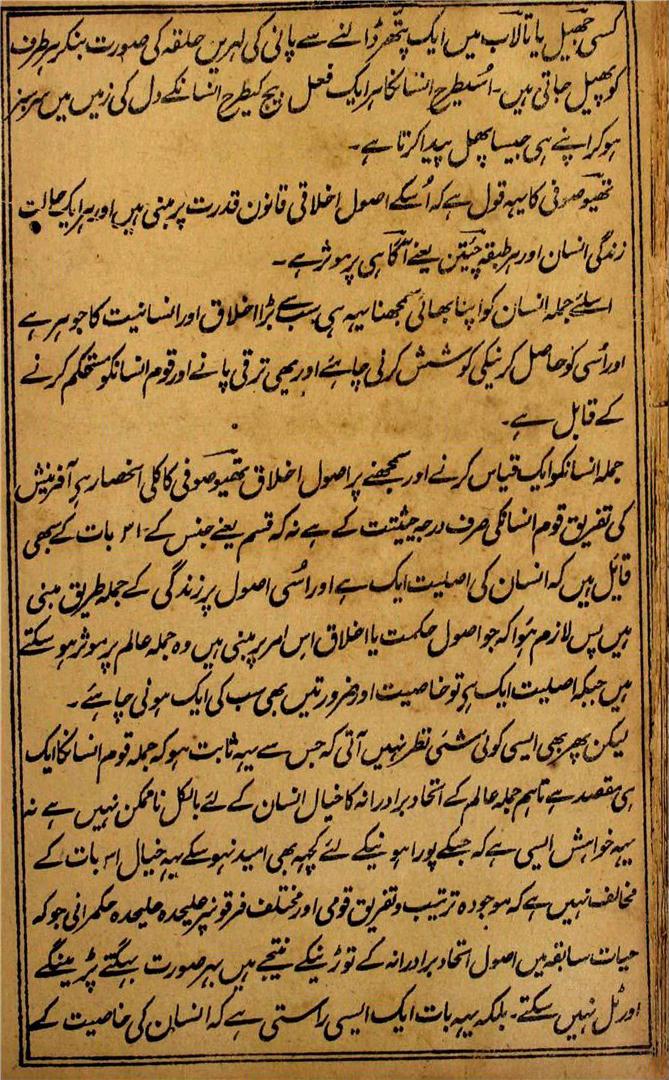 کسی جھیل یا تالاب میں ایک پتھر ڈالنے سے پانی کی لہریں حلقہ کی صورت بنکر ہرطرف
کو پھیل جاتی ہیں۔ اُسیطرح انسانکا ہرایک فعل بیج کیطرح انسانکے دل کی زمیں میں سرسبز
ہوکر اپنے ہی جیسا پھل پیدا کرتا ہے۔
تھیوصوفی کا یہہ قول ہے کہ اُسکے اصول اخلاقی قانون قدرت پر مبنی ہیں اور ہر ایک حالت
زندگی انسان اور ہر طبقہ چیَتن یعنے آگاہی پر موثر ہے۔
اسلئے جملہ انسان کو اپنا بھائی سمجھنا یہہ ہی سب سے بڑا اخلاق اور انسانیت کا جوہر ہے
اور اُسی کو حاصل کرنیکی کوشش کرنی چاہئے اور یہی ترقی پانے اور قوم انسانکو مستحکم کرنے
کے قابل ہے۔
جملہ انسانکو ایک قیاس کرنے اور سمجھنے پر اصول اخلاق تھیوصوفی کا کلی انحصار ہے آفرینش
کی تفریق قوم انسانکی صرف درجہ حیثیت کے ہے نہ کہ قسم یعنے جنس کے۔ اس بات کے سبھی
قائل ہیں کہ انسان کی اصلیت ایک ہے اور اسُی اصول پر زندگی کے جملہ طریق مبنی
ہیں پس لازم ہوا کہ جو اصول حکمت یا اخلاق اس امر پر مبنی ہیں وہ جملہ عالم پر موثر ہو سکتے
ہیں جبکہ اصلیت ایک ہے تو خاصیت اور ضرورتیں بھی سب کی ایک ہونی چاہئے۔
لیکن پھر بھی ایسی کوئی شئی نظر نہیں آتی کہ جس سے یہہ ثابت ہو کہ جملہ قوم انسانکا ایک
ہی مقصد ہے تاہم جملہ عالم کے اتحاد برادرانہ کا خیال انسان کے لئے بالکل ناممکن نہیں ہے نہ
یہہ خواہش ایسی ہے کہ جسکے پورا ہونیکے لئے کچھہ بھی امید نہو سکے یہہ خیال اس بات کے
مخالف نہیں ہے کہ موجودہ ترتیب و تفریق قومی اور مختلف فرقونپر علیحدہ علیحدہ حکمرانی جو کہ
حیات سابقہ میں اصول اتحاد برادرانہ کے توڑنیکے نتیجے ہیں بہر صورت بہگتے پڑینگے
اور ٹل نہیں سکتے۔ بلکہ یہہ بات ایک ایسی راستی ہے کہ انسان کی خاصیت کے